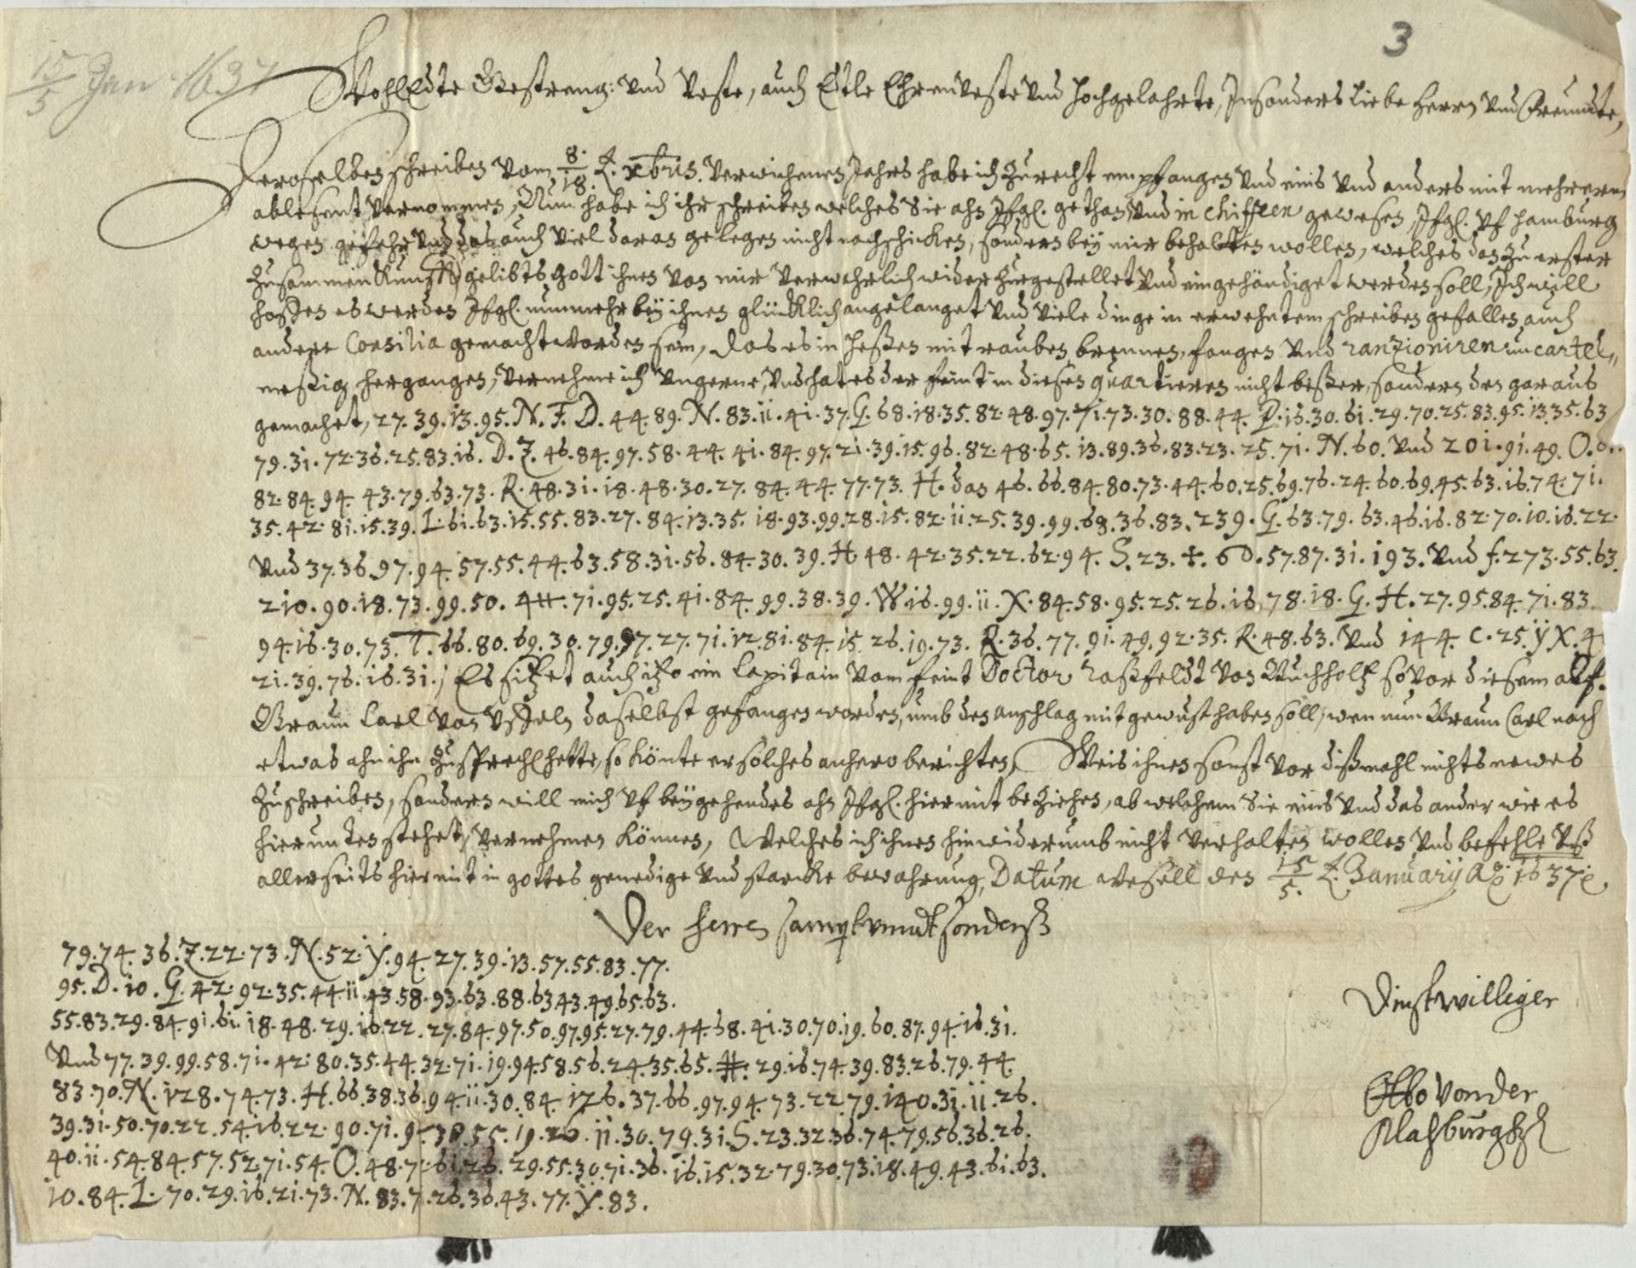 3
15/5 Jan 1637
WohlEdte Gestreng: und Veste, auch Edle Ehrenveste und hochgelahrte, Insonders liebe Herrn und Freundte,
Deroselben schreiben vom 8/18. Xbris. verwichenen Jahrs habe ich zu recht empfangen und eins und anders mit mehrerem
ablesent vernommen, Nun habe ich ihr schreiben welches Sie ahn Jfgl. gethan, und in chiffren gewesen, Jfgl. uf Hamburg
wegen gefehr und das auch viel daran gelegen nicht nachschicken, sondern bey mir behalten wollen, welches dan zu erster
zusammenkunft gelibts gott ihnen von mir verwehrlich wider zurgestellet und eingehändiget werden soll, Ich will
hoffen es werden Jfgl. nunmehr bey ihnen glücklich angelanget und viele dinge in erwehntem schreiben gefallen auch
andere Consilia gemacht worden sein, das es in Heßen mit rauben brennen, fangen und ranzioniren un cartel,,
meßig herganges, vernehme ich ungerne, und hat es der feint in diesen quartieren nicht beßer, sondern den garaus
gemachet, 27. 39. 13. 95. N. F. D. 44. 89. N. 83. 11. 41. 37. G. 68. 18. 35. 82. 48. 97. 71. 73. 30. 88. 44. P. 16. 30. 61. 29. 70. 25. 83. 95. 13. 35. 63
79. 31. 72. 36. 25. 83. 16. D. Z. 46. 84. 97. 58. 44. 41. 84. 97. 21. 39. 15. 96. 82. 48. 65. 13. 89. 36. 83. 23. 25. 71. N. 60. und 201. 91. 49. O.
82. 84. 94. 43. 79. 63. 73. R. 48. 31. 18. 48. 30. 27. 84. 44. 77. 73. H. das 46. 66. 84. 80. 73. 44. 60. 25. 69. 76. 24. 60. 69. 45. 63. 16. 74. 71.
35. 42. 81. 15. 39. L. 61. 63. 15. 55. 83. 27. 84. 13. 35. 18. 93. 99. 28. 15. 82. 11. 25. 39. 99. 68. 36. 83. 239. G. 63. 79. 63. 46. 16. 82. 70. 10. 16. 22.
und 37. 36. 97. 94. 57. 55. 44. 63. 58. 31. 56. 84. 30. 39. H. 48. 42. 35. 22. 62. 94. S. 23. +. 60. 57. 87. 31. 193. und f. 273. 55. 63.
210. 90. 18. 73. 99. 50. 71. 95. 25. 41. 84. 99. 38. 39. W. 16. 99. 11. X. 84. 58. 95. 25. 26. 16. 78. 18. G. H. 27. 95. 84. 71. 83.
94. 16. 30. 73. T. 66. 80. 69. 30. 79. 97. 27. 71. 12. 81. 84. 15. 26. 19. 73. R. 36. 77. 91. 49. 92. 35. R. 48. 63. und 144. C. 25. ÿ X. 4
21. 39. 76. 16. 31. Es sitzet auch itzo ein Capitain vom feint Doctor Raßfeldt von Buchholtz so vor diesem
Braun Carl von Ußeln daselbst gefangen worden, umb den anschlag mit gewust haben soll, wen nun Braun Carl noch
etwas ahn ihn zusprech hette, so könte er solches anhero berichten, Weis ihnen sonst vor dißmahl nichts newes
zuschreiben, sondern will mich uf beygehendes ahn Jfgl. hiermit beziehen, ab welchem Sie eins und das ander wie es
hierunten stehet, vernehmen können, Welches ich ihnen hinwiderumb nicht verhalten wollen und befehle unß
allerseits hiermit in gottes genedige und starcke bewahrung, Datum Wesell den 15/5. Januarij Ao 1637
Der Herren sampt unndt sonderß
79. 74. 36. Z. 22. 73. N. 52. Y. 94. 27. 39. 13. 57. 55. 83. 77.
95. D. 10. G. 42. 92. 35. 44. 11. 43. 58. 93. 63. 88. 63. 43. 49. 65. 63.
55. 83. 29. 84. 91. 61. 18. 48. 29. 16. 22. 27. 84. 97. 50. 97. 95. 27. 79. 44. 68. 41. 30. 70. 19. 60. 87. 94. 16. 31.
und 77. 39. 99. 58. 71. 42. 80. 35. 44. 32. 71. 19. 94. 58. 56. 24. 35. 65. #. 29. 16. 74. 39. 83. 26. 79. 44.
83. 70. N. 128. 74. 73. H. 66. 38. 36. 94. 11. 30. 84. 126. 37. 66. 97. 94. 73. 22. 79. 140. 31. 11. 26.
39. 31. 50. 70. 22. 54. 16. 22. 90. 71. 55. 19. 11. 30. 79. 31. S. 23. 32. 36. 74. 79. 56. 36. 26.
40. 11. 54. 84. 57. 52. 71. 54. O. 48. 29. 55. 30. 71. 36. 16. 15. 32. 79. 30. 73. 18. 49. 43. 61. 63.
10. 84. L. 70. 29. 16. 21. 73. N. 83. 7. 26. 36. 43. 77. Y. 83.
Dinstwilliger
Otto von der
Malsburg